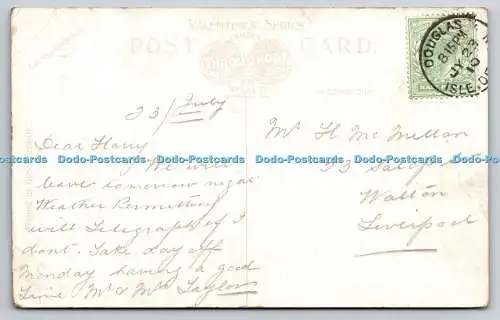 VALENTINE'S SERIES
POST CARD.
DOUGLAS
8.15PM
JY 23
10
ISLE OF
23/July
Dear Harry
We will
leave tomorrow night
Weather Permitting
will Telegraph if I
dont. Take day off
Monday having a good
time Mr & Mrs Taylors
Mr H McMellon
33
Walton
Liverpool
Dodo-Postcards Dodo-Postcards Dodo-Postcards Dodo-Postcards Dodo-Postcards Dodo-Postcards